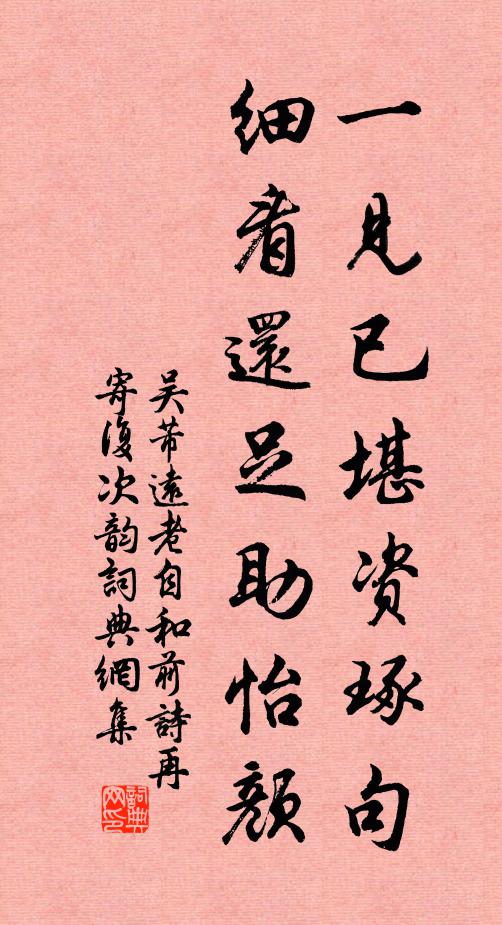 一見已堪資琢句
細看還足助怡顏
吳芾遠老自和前詩再
寄復次韵詞典網集
詞典网印